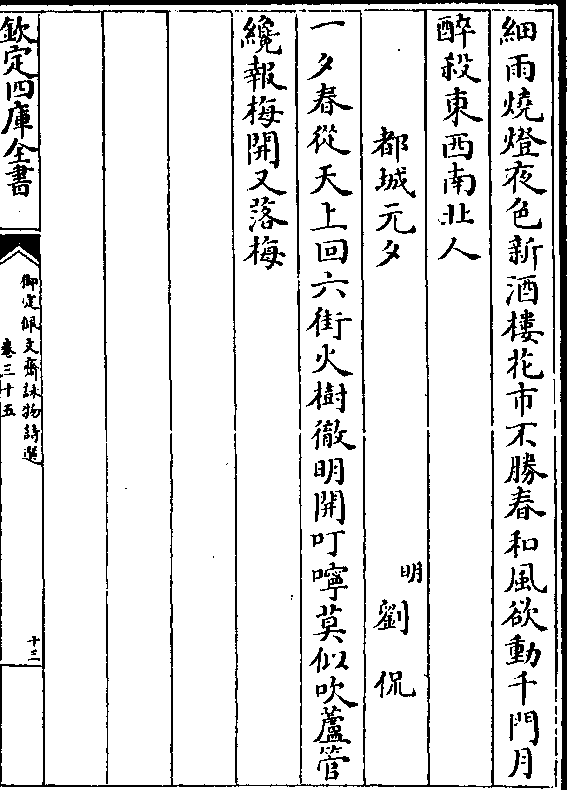 細雨燒燈夜色新酒樓花市不勝春和風欲動千門月
醉殺東西南北人
都城元夕
明劉侃
一夕春從天上回六街火樹徹明開叮嚀莫似吹蘆管
纔報梅開又落梅
欽定四庫全書
御定佩文齋詠物詩選
卷三十五
十三